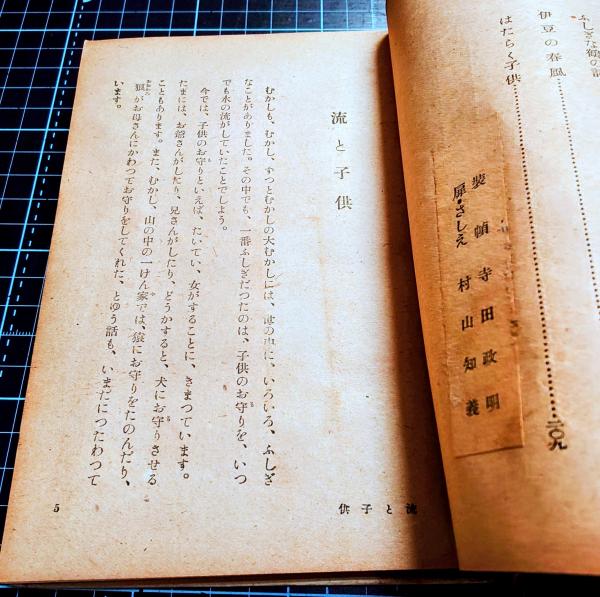 ふしぎな
伊豆の春風
はたらく子供……二〇九
装幀 寺田政明
扉・さしえ 村山知義
流と子供
むかしも、むかし、ずつとむかしの大むかしには、世の中に、いろいろ、ふしぎ
なことがありました。その中でも、一番ふしぎだつたのは、子供のお守りを、いつ
でも水の流がしていたことでしよう。
今では、子供のお守りといえば、たいてい、女がすることに、きまつています。
たまには、お爺さんがしたり、兄さんがしたり、どうかすると、犬にお守りさせる
こともあります。また、むかし、山の中の一けん家では、猿にお守りをたのんだり、
狼がお母さんにかわつてお守りをしてくれた、とゆう話も、いまだにつたわつて
います。
流と子供
5